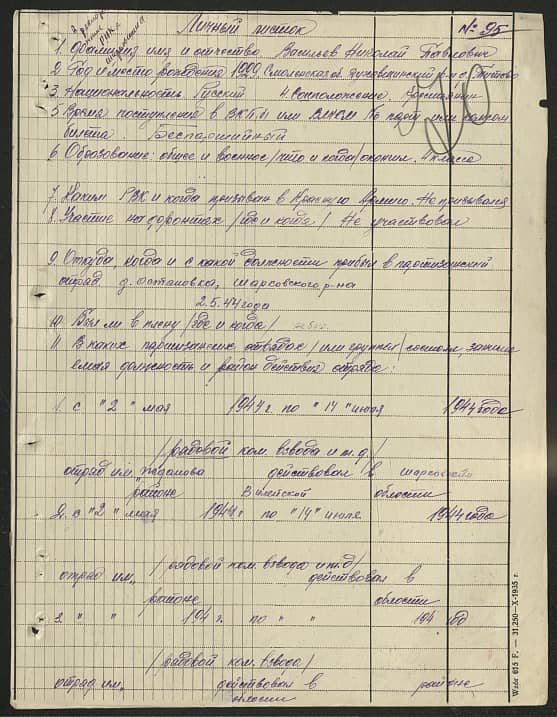 Личный листок № 95
1. Фамилия имя и отчество Васильев Николай Павлович
2. Год и место рождения 1909 Смоленская
3. Национальность Русский 4. Соцположение крестьянин
5. Время поступления в ВКП/б/ или ВЛКСМ № парт. или комсом
билета беспартийный
6. Образование: общее и военное /что и когда/ окончил. 4 класса
7. Каким РВК и когда призыван в Красную Армию. Не призывался
8. Участие на фронтах /где и когда/ Не участвовал
9. Откуда, когда и с какой должности прибыл в партизанский
отряд д. Остановка, Шарковского р-на
2.5.44 года
10. Был ли в плену /где и когда/ не был
11. В каких партизанских отрядах /или группах/ состоял, занима
емая должность и район действия отряда:
1. с "2" мая 1944 г. по "14" июля 1944 года
/рядовой ком. взвода и т.д/
отряд им. Жданова действовал в
районе Вилейской области
2. с "2" мая 1944 г по "14" июля 1944 года
/рядовой ком. взвода и т.д/
отряд им. „ действовал в
районе области
3. " " 194 г. по " " 194 год
/рядовой ком. взвода/
отряд им. „ действовал в районе
области
Wzór 615 F. — 31.250—X-1935 r.